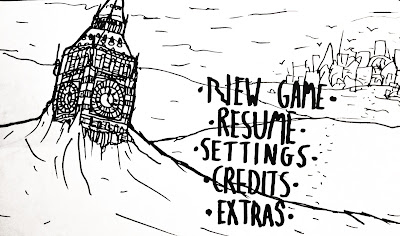 ·NEW GAME·
·RESUME·
·SETTINGS·
·CREDITS·
·EXTRAS·